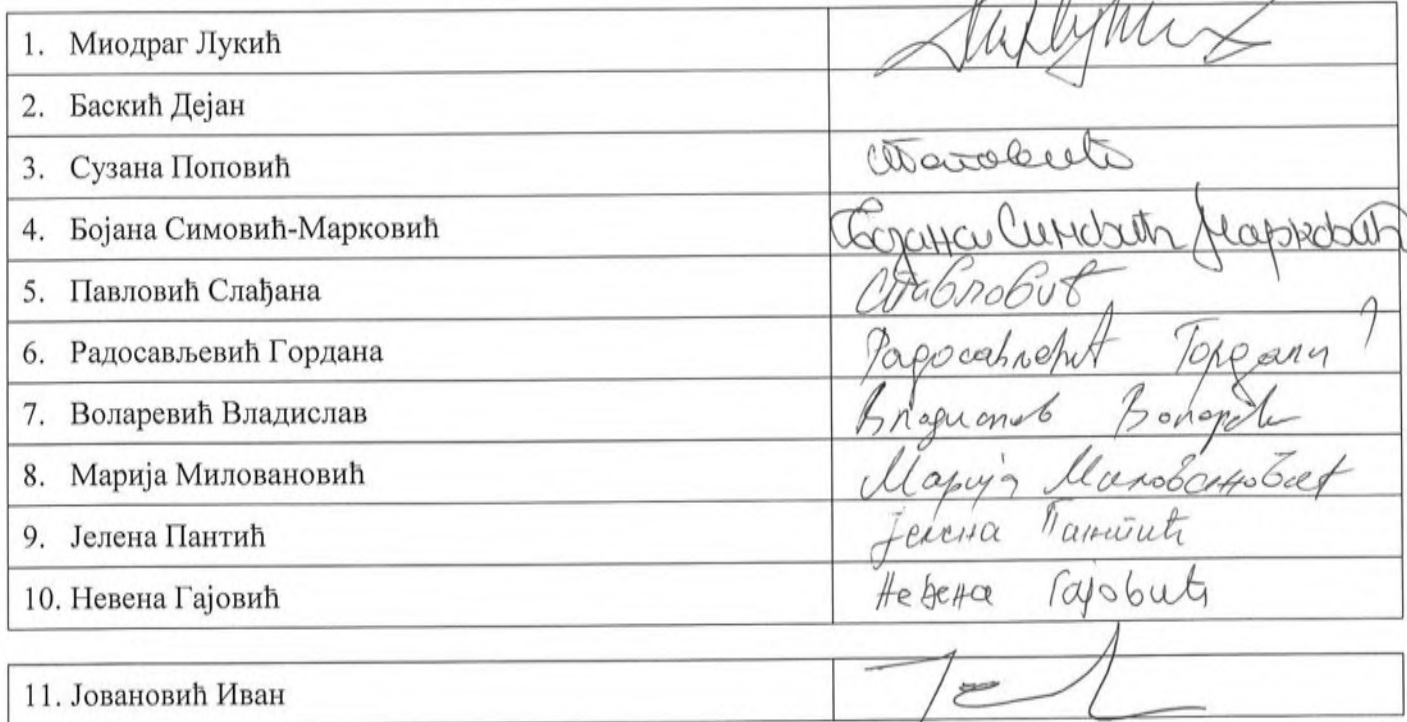 1. Миодраг Лукић
2. Баскић Дејан
3. Сузана Поповић
4. Бојана Симовић-Марковић Бојана Симовић Марковић
5. Павловић Слађана
6. Радосављевић Гордана Радосављевић Гордана
7. Воларевић Владислав Владислав
8. Марија Миловановић Марија Миловановић
9. Јелена Пантић Јелена Пантић
10. Невена Гајовић Невена Гајовић
11. Јовановић Иван